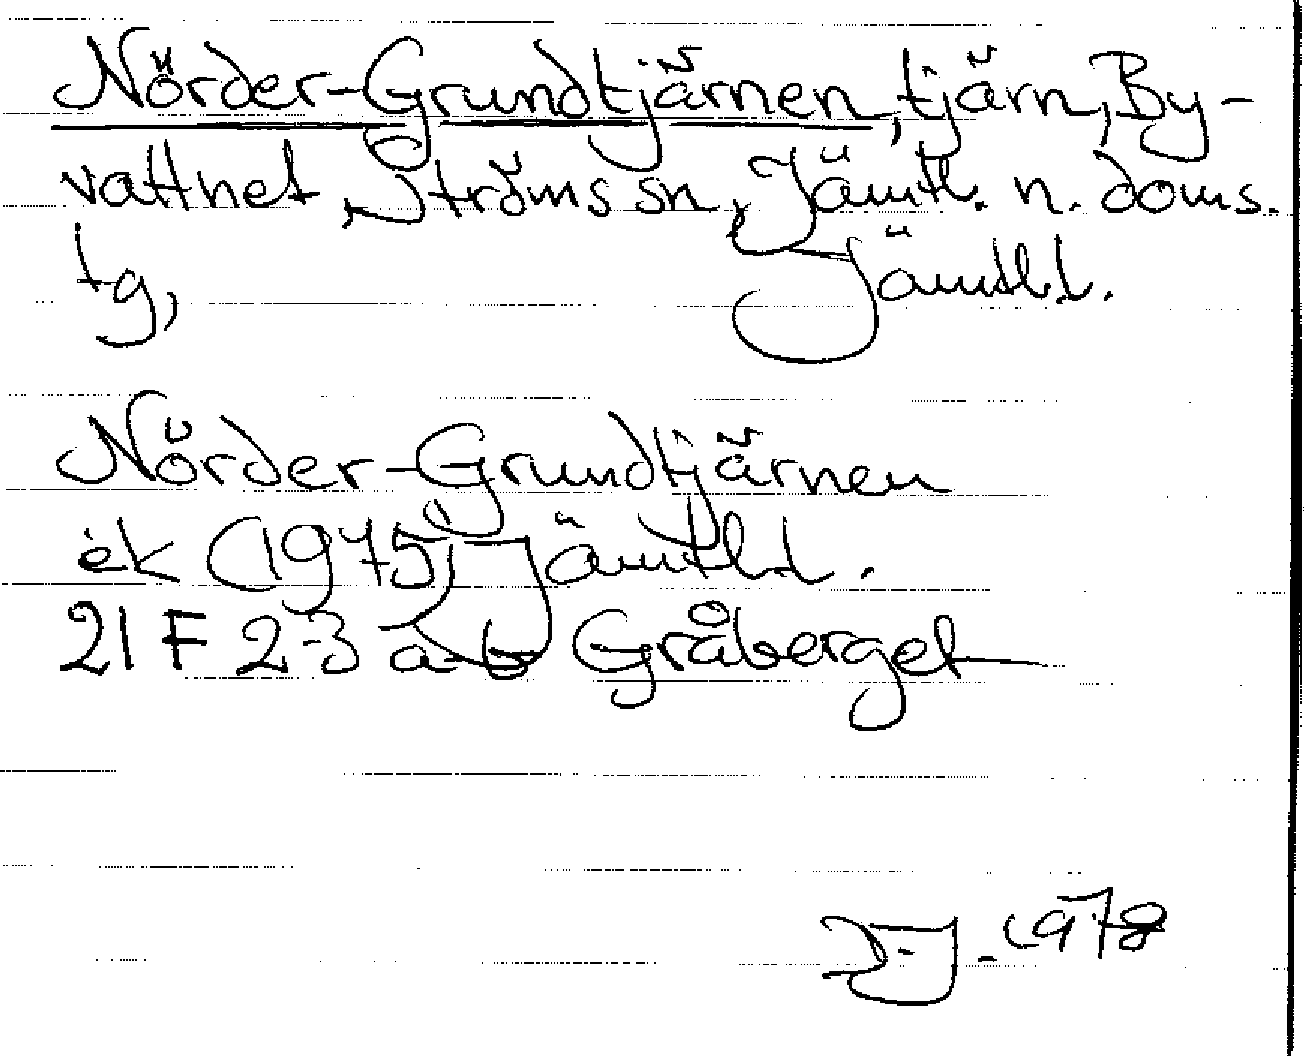 Nörder-Grundtjärnen, tjärn, By-
vattnet, Ströms sn, Jämtl. n. doms.
tg, Jämtl.l.
Nörder-Grundtjärnen
ek (1975) Jämtl.l.
21 F 2-3 a-b Gråberget
1978